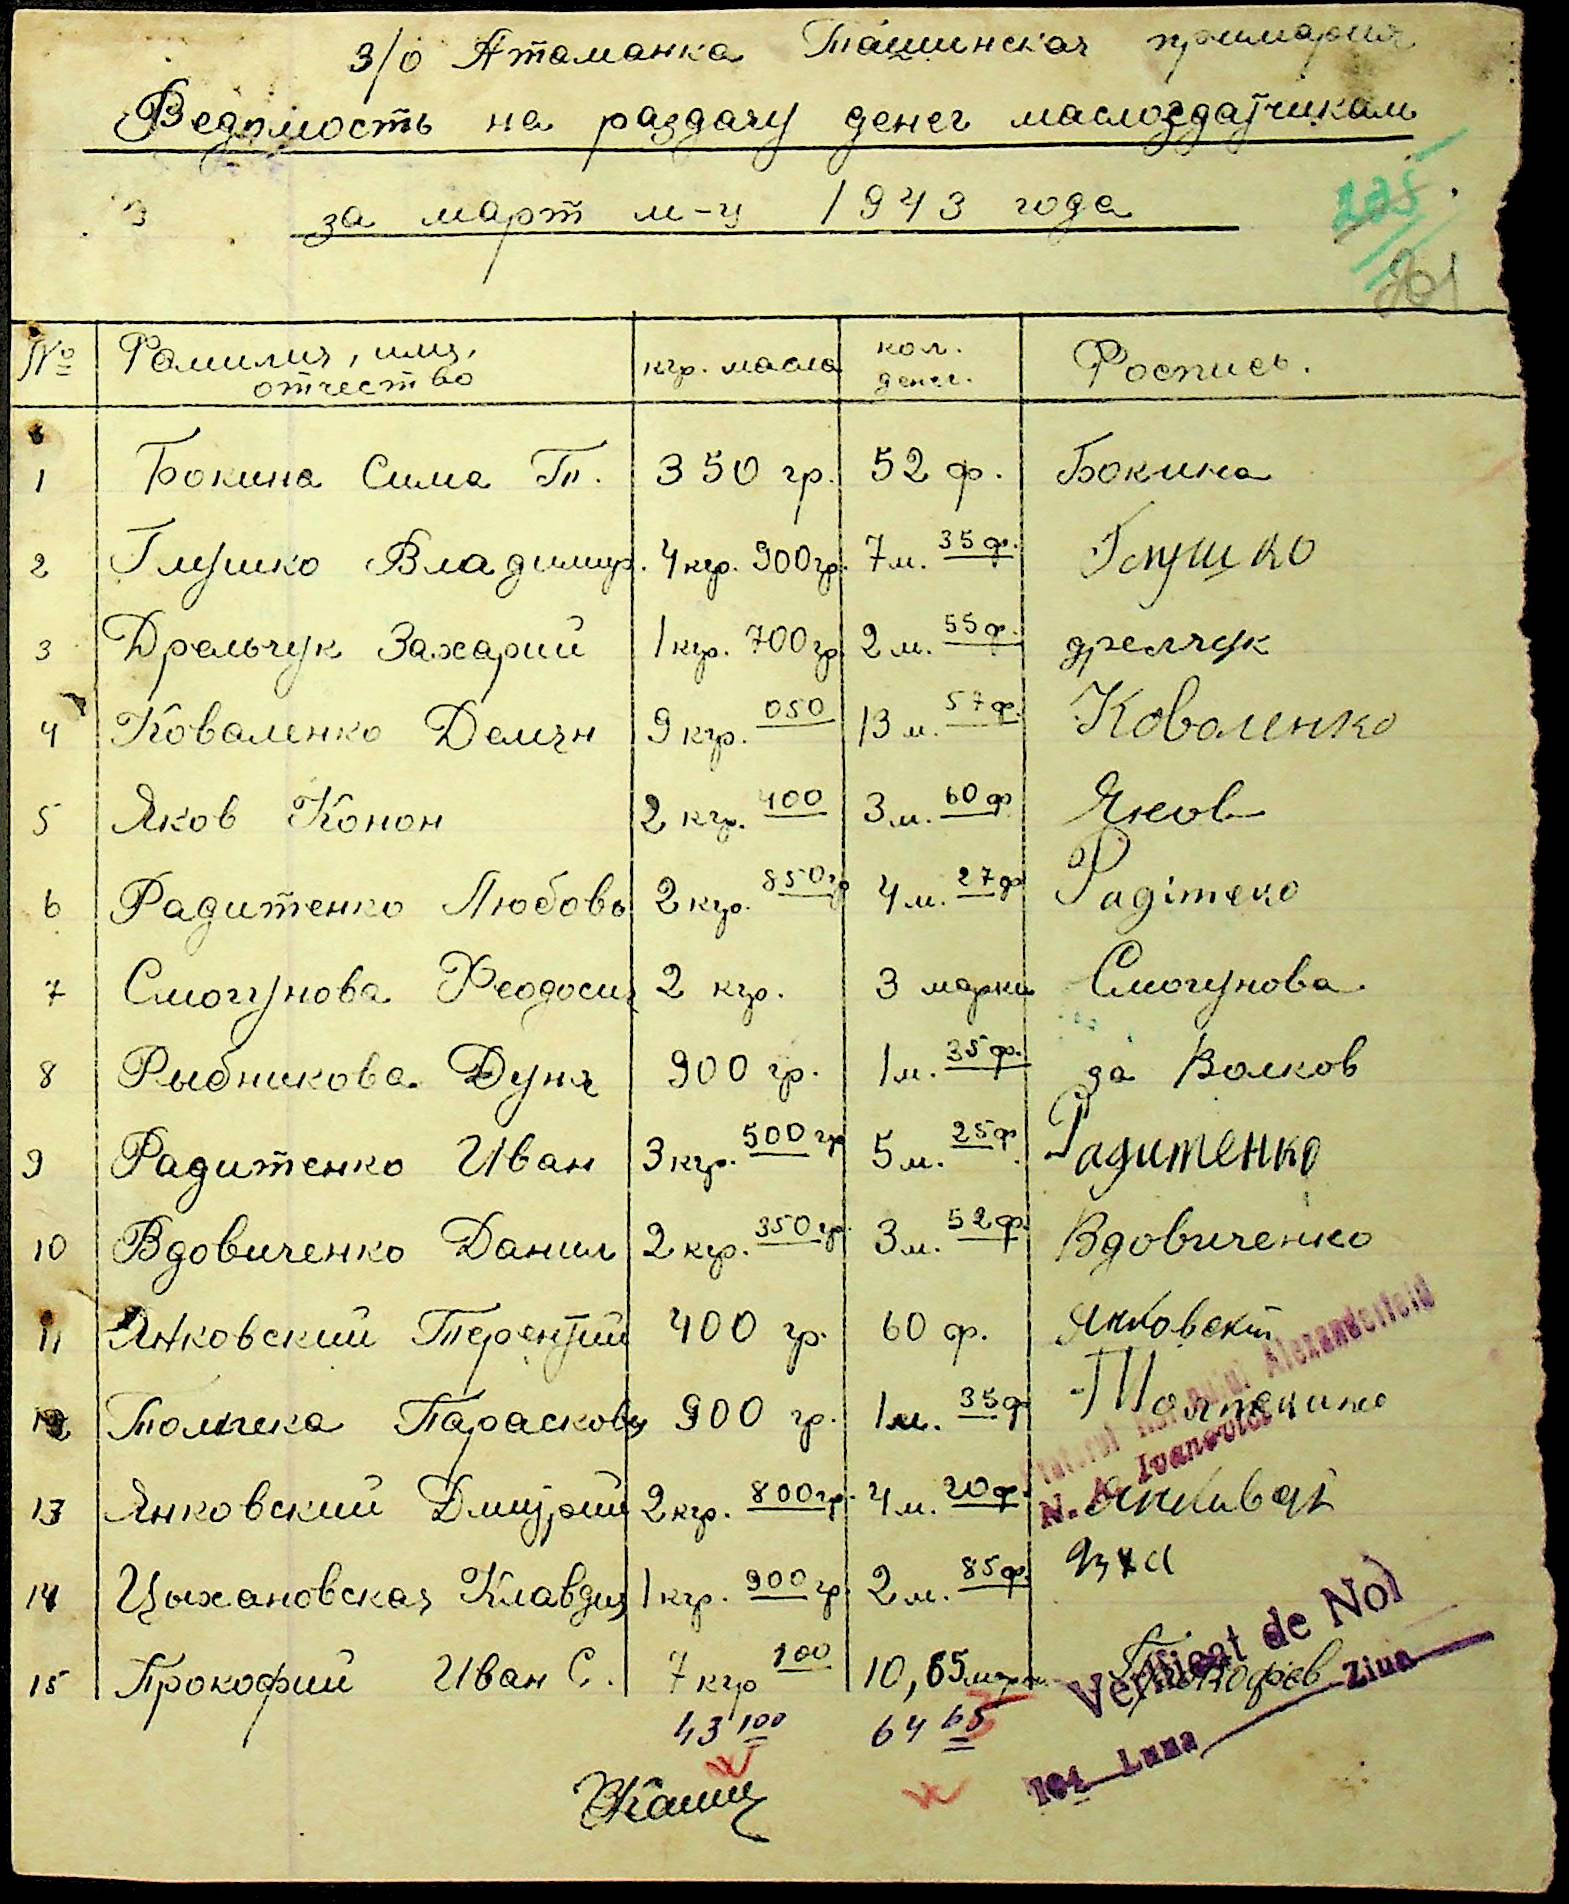 з/о Атаманка Ташинская примария
Ведомость на раздачу денег маслосдатчикам
за март м-ц 1943 года
225
№ Фамилия, имя, отчество кгр. масла кол. денег. Роспись.
1 Бокина Сима Т. 350 гр. 52 ф. Бокина
2 Глушко Владимир. 4 кгр. 900 гр. 7 м. 35 ф. Глушко
3 Дрельчук Захарий 1 кгр. 700 гр. 2 м. 55 ф. дрелчук
4 Коваленко Демян 9 кгр. 050 13 м. 57 ф. Коваленко
5 Яков Конон 2 кгр. 400 3 м. 60 ф Яков
6 Радитенко Любовь 2 кгр. 850 гр 4 м. 27 ф Радітеко
7 Смогунова Феодосия 2 кгр. 3 марки Смогунова
8 Рыбникова Дуня 900 гр. 1 м. 35 ф. за Волков
9 Радитенко Иван 3 кгр. 500 гр 5 м. 25 ф. Радитенко
10 Вдовиченко Данил 2 кгр. 350 гр. 3 м. 52 ф. Вдовиченко
11 Янковский Терентий 400 гр. 60 ф. Янковский
12 Толмчека Парасковия 900 гр. 1 м. 35 ф
13 Янковский Дмитрий 2 кгр. 800 гр. 4 м. 20 ф.
14 Цыхановская Клавдия 1 кгр. 900 гр. 2 м. 85 ф.
15 Прокофий Иван С. 7 кгр 100 10,65 марк. Прокофьев
43 100 64 65
Alexanderfeld
N. A. Ivanovici
Verificat de Noi
194 Luna Ziua